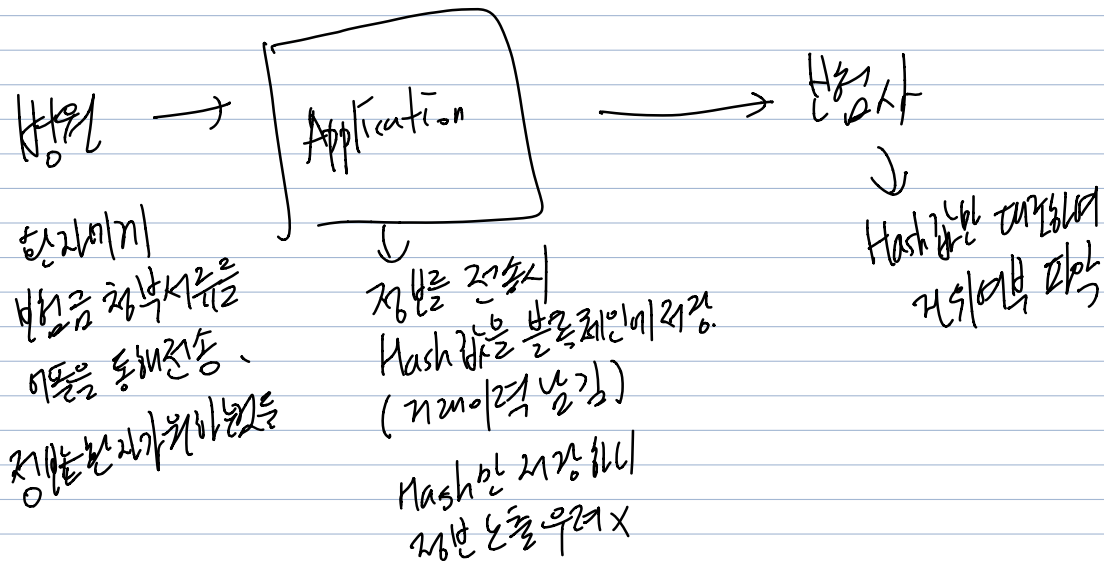 병원
Application
보험사
환자에게
보험금 청부서류를
어플을 통해전송.
정보는 환자가위하뭔든
정보를 전송시
Hash값을 블록체인에저장.
(거래이력 남김)
Hash만 저장하니
정보 노출 우려 X
Hash값만 대조하여
진위여부 파악